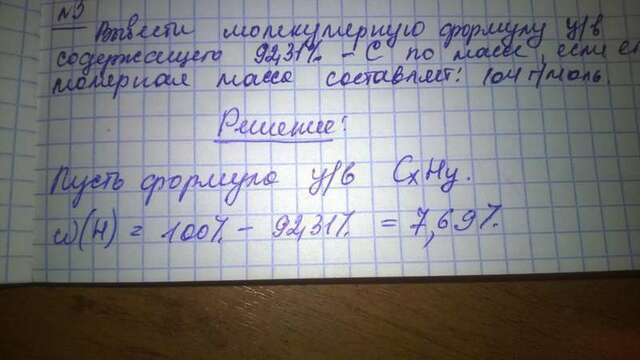 №3
Вывести молекулярную формулу у/в
содержащего 92,31% - С по массе, если ег
молярная масса составляет: 104 г/моль.
Решение:
Пусть формула у/в CxHy.
ω(H) = 100% - 92,31% = 7,69%.